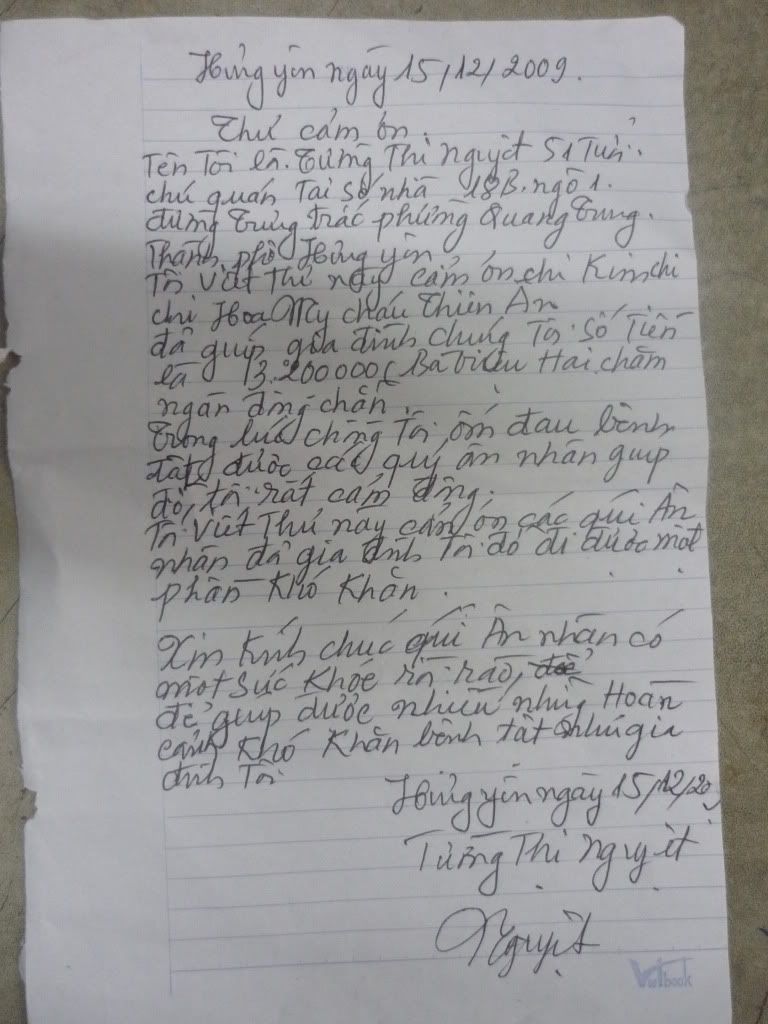 Hưng yên ngày 15/12/2009.
Thư cảm ơn.
Tên Tôi là. Tưởng Thị Nguyệt 51 Tuổi.
chú quán Tại số nhà 18B. ngõ 1.
đường Trưng trắc phường Quang Trung.
Thành phố Hưng yên
Tôi Viết Thư này cảm ơn chi Kim chi
chi Hoa My cháu Thiên Ân
đã giúp gia đình chúng Tôi số Tiền
là 13.200000 ( Ba Triệu Hai chăm
ngàn đồng chẵn.
Trong lúc chồng Tôi ốm đau bệnh
tật được các quý ân nhân giup
đỡ, tôi rất cảm động.
Tôi Viết Thư này cảm ơn các quí Ân
nhân đã gia đình Tôi đỡ đi được một
phần Khó Khăn.
Xin Kính chúc quí Ân nhân có
một Sức Khỏe rồi rào,
để giup được nhiều những Hoàn
cảnh Khó Khăn bệnh tật như gia
đình Tôi
Hưng yên ngày 15/12/20
Tưởng Thị Nguyệt
Nguyệt
Vietbook